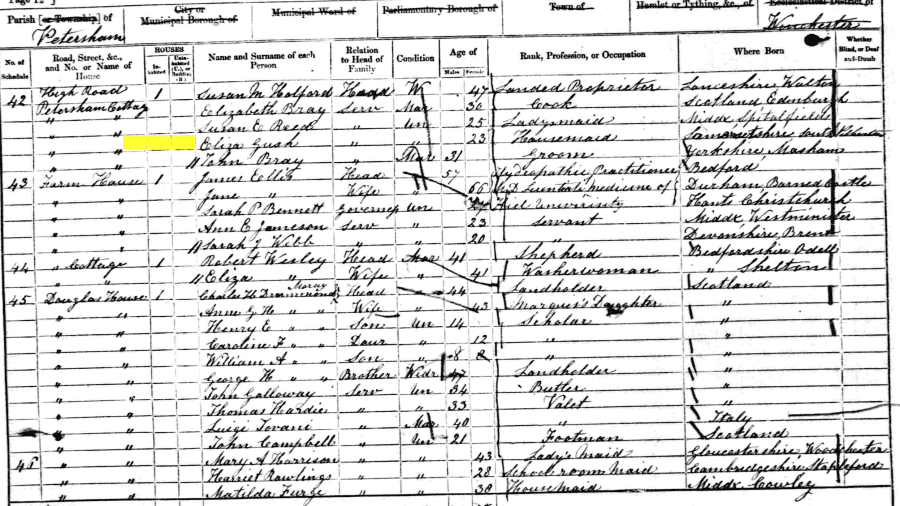 Page 12
Parish [or Township] of Petersham
City or Municipal Borough of
Municipal Ward of
Parliamentary Borough of
Town of
Hamlet or Tything, &c., of
Ecclesiastical District of Winchester
No. of Schedule | Road, Street, &c., and No. or Name of House | HOUSES In-habited | Name and Surname of each Person | Relation to Head of Family | Condition | Age of Males | Females | Rank, Profession, or Occupation | Where Born | Whether Blind, or Deaf and-Dumb
42 High Road 1 Susan M Holford Head W 47 Landed Proprietor Lancashire Walton
Petersham Cottag Elizabeth Bray Serv Mar 30 Cook Scotland Edinburgh
" " Susan E Reed " Un 25 Ladysmaid Middx Spitalfields
" " Eliza Gush " " 23 Housemaid Somersetshire South
" " John Bray " Mar 31 Groom Yorkshire Masham
43 Farm House 1 James Ellis Head " 57 Hydropathic Practitioner Bedford
" " Jane " Wife " 66 M.D. medicine of Durham Barned Castle
" " Sarah P Bennett Governess Un Kiel University Hants Christchurch
" " Ann E Jameson Serv " 23 Servant Middx Westminister
" " Sarah J Webb " " 20 " Devonshire Brent
44 " Cottage 1 Robert Wesley Head Mar 41 Shepherd Bedfordshire Odell
" " Eliza " Wife " 41 Washerwoman " Shelton
45 Douglas House 1 Charles H Drummond Moray Head " 44 Landholder Scotland
" " Anne G H " " Wife " 43 Marquis's Daughter "
" " Henry E " " Son Un 14 Scholar "
" " Caroline F " " Daur " 12 " "
" " William A " " Son " 8 " "
" " George H " " Brother Widr 47 Landholder "
" " John Galloway Serv Un 34 Butler "
" " Thomas Hardie " " 33 Valet "
" " Luigi Iovani " Mar 40 " Italy
" " John Campbell " Un 21 Footman Scotland
45 " " Mary A Harrison " " 43 Lady's Maid Gloucestershire Woodchester
" " Harriet Rawlings " " 28 School room Maid Cambridgeshire Stapleford
" " Matilda Furge " " 38 House maid Middx Cowley